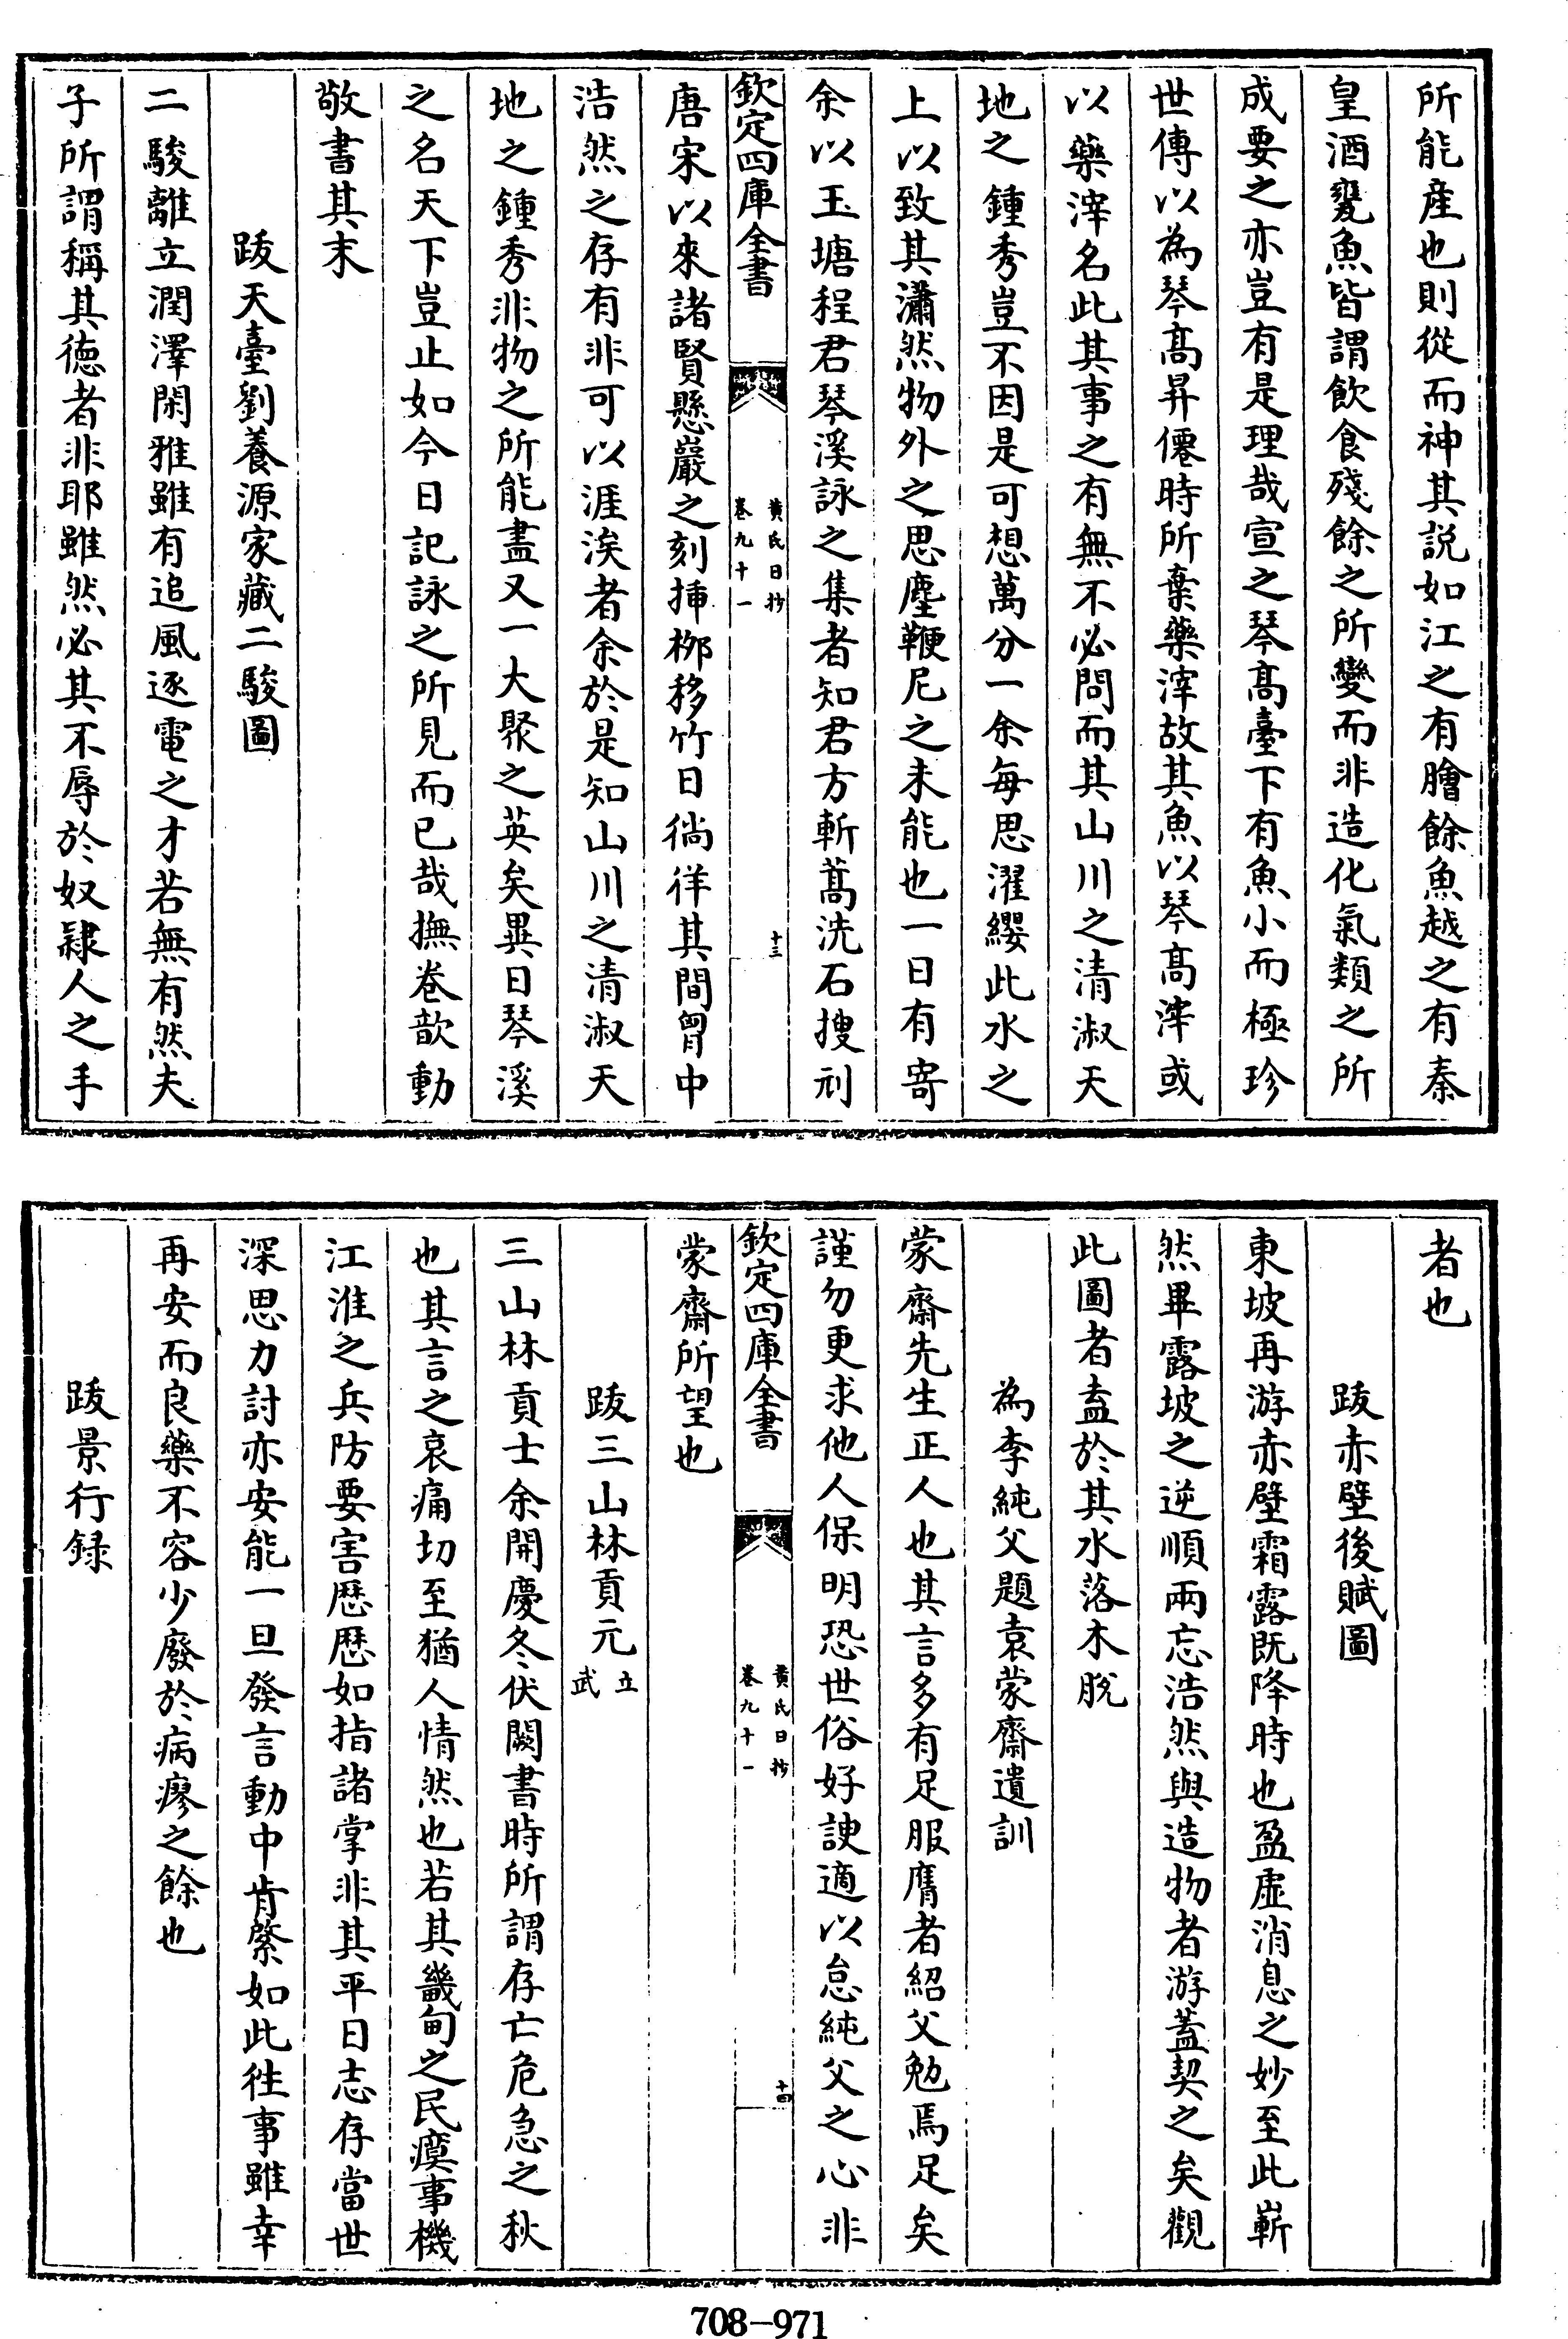 所能産也則從而神其説如江之有膾餘魚越之有秦
皇酒甕魚皆謂飲食殘餘之所變而非造化氣類之所
成要之亦豈有是理哉宣之琴髙臺下有魚小而極珍
世傳以為琴髙昇僊時所棄藥滓故其魚以琴髙滓或
以藥滓名此其事之有無不必問而其山川之清淑天
地之鍾秀豈不因是可想萬分一余每思濯纓此水之
上以致其瀟然物外之思塵鞅尼之未能也一日有寄
余以玉塘程君琴溪詠之集者知君方斬蒿洗石搜刓
欽定四庫全書
黄氏日抄
卷九十一
十三
唐宋以來諸賢懸巖之刻揷栁移竹日徜徉其間胷中
浩然之存有非可以涯涘者余於是知山川之清淑天
地之鍾秀非物之所能盡又一大聚之英矣異日琴溪
之名天下豈止如今日記詠之所見而已哉撫卷歆動
敬書其末
跋天臺劉養源家藏二駿圖
二駿離立潤澤閑雅雖有追風逐電之才若無有然夫
子所謂稱其徳者非耶雖然必其不辱於奴隷人之手
者也
跋赤壁後賦圖
東坡再游赤壁霜露既降時也盈虚消息之妙至此嶄
然畢露坡之逆順兩忘浩然與造物者游蓋契之矣觀
此圖者盍於其水落木脱
為李純父題袁蒙齋遺訓
蒙齋先生正人也其言多有足服膺者紹父勉焉足矣
謹勿更求他人保明恐世俗好諛適以怠純父之心非
欽定四庫全書
黄氏日抄
卷九十一
十四
蒙齋所望也
跋三山林貢元立武
三山林貢士余開慶冬伏闕書時所謂存亡危急之秋
也其言之哀痛切至猶人情然也若其畿甸之民瘼事機
江淮之兵防要害歴歴如指諸掌非其平日志存當世
深思力討亦安能一旦發言動中肯綮如此徃事雖幸
再安而良藥不容少廢於病瘳之餘也
跋景行録
708-971